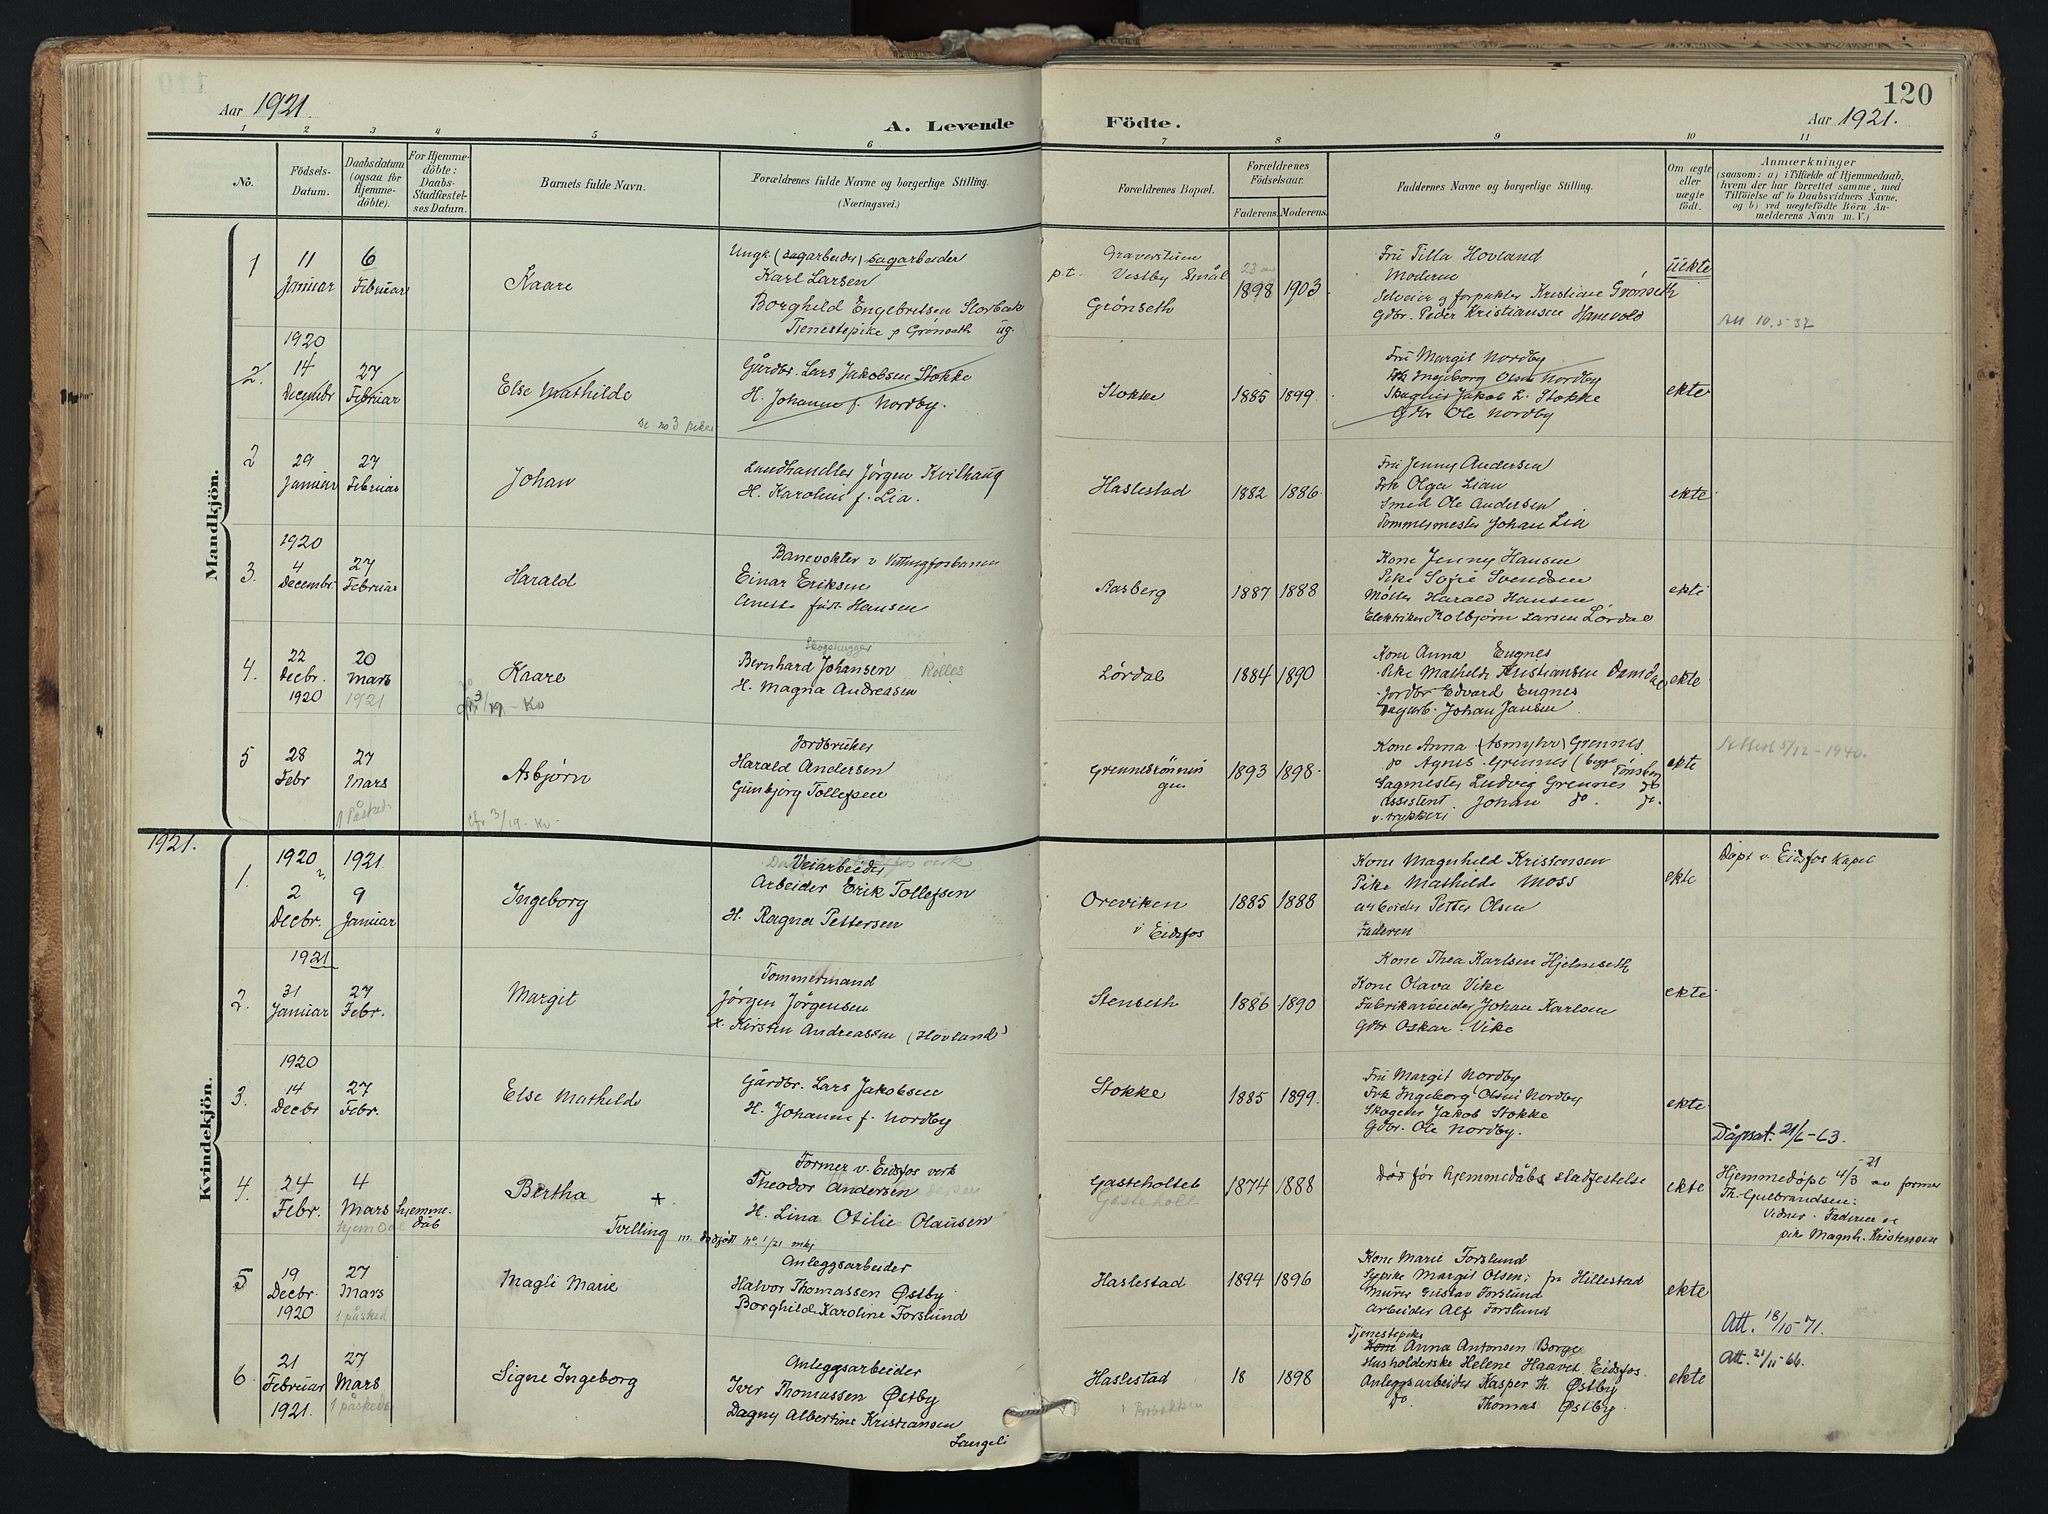 Aar 1921.
A. Levende Födte.
120
Aar 1921.
1 2 3 4 5 6 7 8 9 10 11
No.
Födsels-Datum.
Daabsdatum (ogsaa for Hjemme-döbte).
For Hjemme-döbte: Daabs-Stadfæstel-ses Datum.
Barnets fulde Navn.
Forældrenes fulde Navne og borgerlige Stilling.
(Næringsvei.)
Forældrenes Bopæl.
Forældrenes Födselsaar.
Faderens. Moderens.
Faddernes Navne og borgerlige Stilling.
Om ægte eller uægte födt.
Anmærkninger
(saasom: a) i Tilfælde af Hjemmedaab,
hvem der har forrettet samme, med
Tilföielse af to Daabsvidners Navne,
og b) ved uægtefödte Börn An-
melderens Navn m. V.)
Mandkjön.
1
11 Januar
6 Februar
Kaare
Ungk (sagarbeider) sagarbeider
Karl Larsen
Borghild Engebretsen Storbæk
Tjenestepike p Grönseth ug.
p.t. Vestby Smål
Grönseth
1898 1903
Fru Tilla Hovland
Moderen
Selveier og forpakter Kristian Grönseth
Gdbr. Peder Kristiansen Hanevold
uekte
Att 10.5 37
2.
1920
14 Decembr
27 Februar
Else Mathilde
se no 3 piker
Gårdbr. Lars Jakobsen Stokke
H. Johanne f. Nordby.
Stokke
1885 1899.
Fru Margit Nordby
Frk Ingeborg Olsen Nordby
Jakob L. Stokke
Gdbr Ole Nordby
ekte
2
29 Januar
27 Februar
Johan
Landhandler Jörgen Kvilhaug
H. Karoline f. Lia.
Haslestad
1882 1886.
Fru Jenny Andersen
Frk Olga Lian
Smed Ole Andersen
Tömmermester Johan Lia
ekte
3.
1920
4 Decembr.
27 Februar
Harald
Banevokter v Vittingfosbanen
Einar Eriksen
födt Hansen
Aasberg
1887 1888
Kone Jenny Hansen
Pike Sofie Svendsen
Möller Harald Hansen
Elektriker Kolbjörn Larsen Lördal
ekte
4.
22 Decbr. 1920
20 Mars 1921
Kaare
3/19. - Kv
Skogshugger
Bernhard Johansen
H. Magna Andreasen
Lördal
1884 1890
Kone Anna Engnes
Pike Mathilde Kristiansen Damdal
Jordbr Edvard Engnes
Sagarb. Johan Jansen
ekte
5
28 Febr
27 Mars
1 Påsked
Asbjörn
cfr 3/19. Kv.
Jordbruker
Harald Andersen
Gunbjörg Tollefsen
Grennesrönnin
gen
1893 1898.
Kone Anna (Asmyhr) Grennes
do Agnes Grennes (begge Tönsberg
Sagmester Ludvig Grennes do
assistent Johan do. do.
v. trykkeri
ekte
5/12 - 1940.
1921.
Kvindekjön.
1.
1920
2 Decbr.
1921
9 Januar
Ingeborg
Veiarbeider
Arbeider Erik Tollefsen
H. Ragna Pettersen
Oreviken
i Eidsfos
1885 1888
Kone Magnhild Kristensen
Pike Mathilde Moss
arbeider Petter Olsen
Faderen
ekte
Döpt v. Eidsfos Kapel
2.
1921
31 Januar
27 Febr.
Margit
Tömmermand
Jörgen Jörgensen
H. Kirsten Andreassen (Hovland)
Stenseth
1886 1890
Kone Thea Karlsen Hjelmseth
Kone Olava Vike
Fabrikarbeider Johan Karlsen
Gdbr Oskar Vike
ekte
3.
1920
14 Decbr
27 Febr.
Else Mathilde
Gårdbr. Lars Jakobsen
H. Johanne f. Nordby
Stokke
1885 1899.
Fru Margit Nordby
Frk Ingeborg Olsen Nordby
Skogeier Jakob Stokke
Gdbr. Ole Nordby.
ekte
Dåpsat. 21/6-63.
4.
24 Febr.
4 Mars
hjemme-
dåb
Bertha +
Tvilling m. dödfödt no. 1/21 mkj
Former v. Eidsfos verk
Theodor Andersen
H. Lina Otilie Olausen
Gasteholtet
Gasteholt
1874 1888
Död för hjemmedåbs stadfestelse
ekte
Hjemmedöpt 4/3-21 av former
Th. Gulbrandsen:
Vidner. Faderen og
pike Magnh. Kristensen
5
19 Decbr. 1920
27 Mars
1 påsked
Magli Marie
Anleggsarbeider
Halvor Thomassen Østby
Borghild Karoline Forslund
Haslestad
1894 1896
Kone Marie Forslund
Sypike Margit Olsen; fra Hillestad
Murer Gustav Forslund
arbeider Alf Forslund
ekte
Att. 18/10-71.
6.
21 Februar 1921.
27 Mars
1 påsked
Signe Ingeborg
Anleggsarbeider
Iver Thomassen Østby
Dagny Albertine Kristiansen
Langeli
Haslestad
18 1898
Tjenestepike
Kone Anna Antonsen Borge
Husholderske Helene Haavet Eidsfos
Anleggsarbeider Kasper Th. Østby
Do. Thomas Østby.
ekte
Att. 21/11-66.